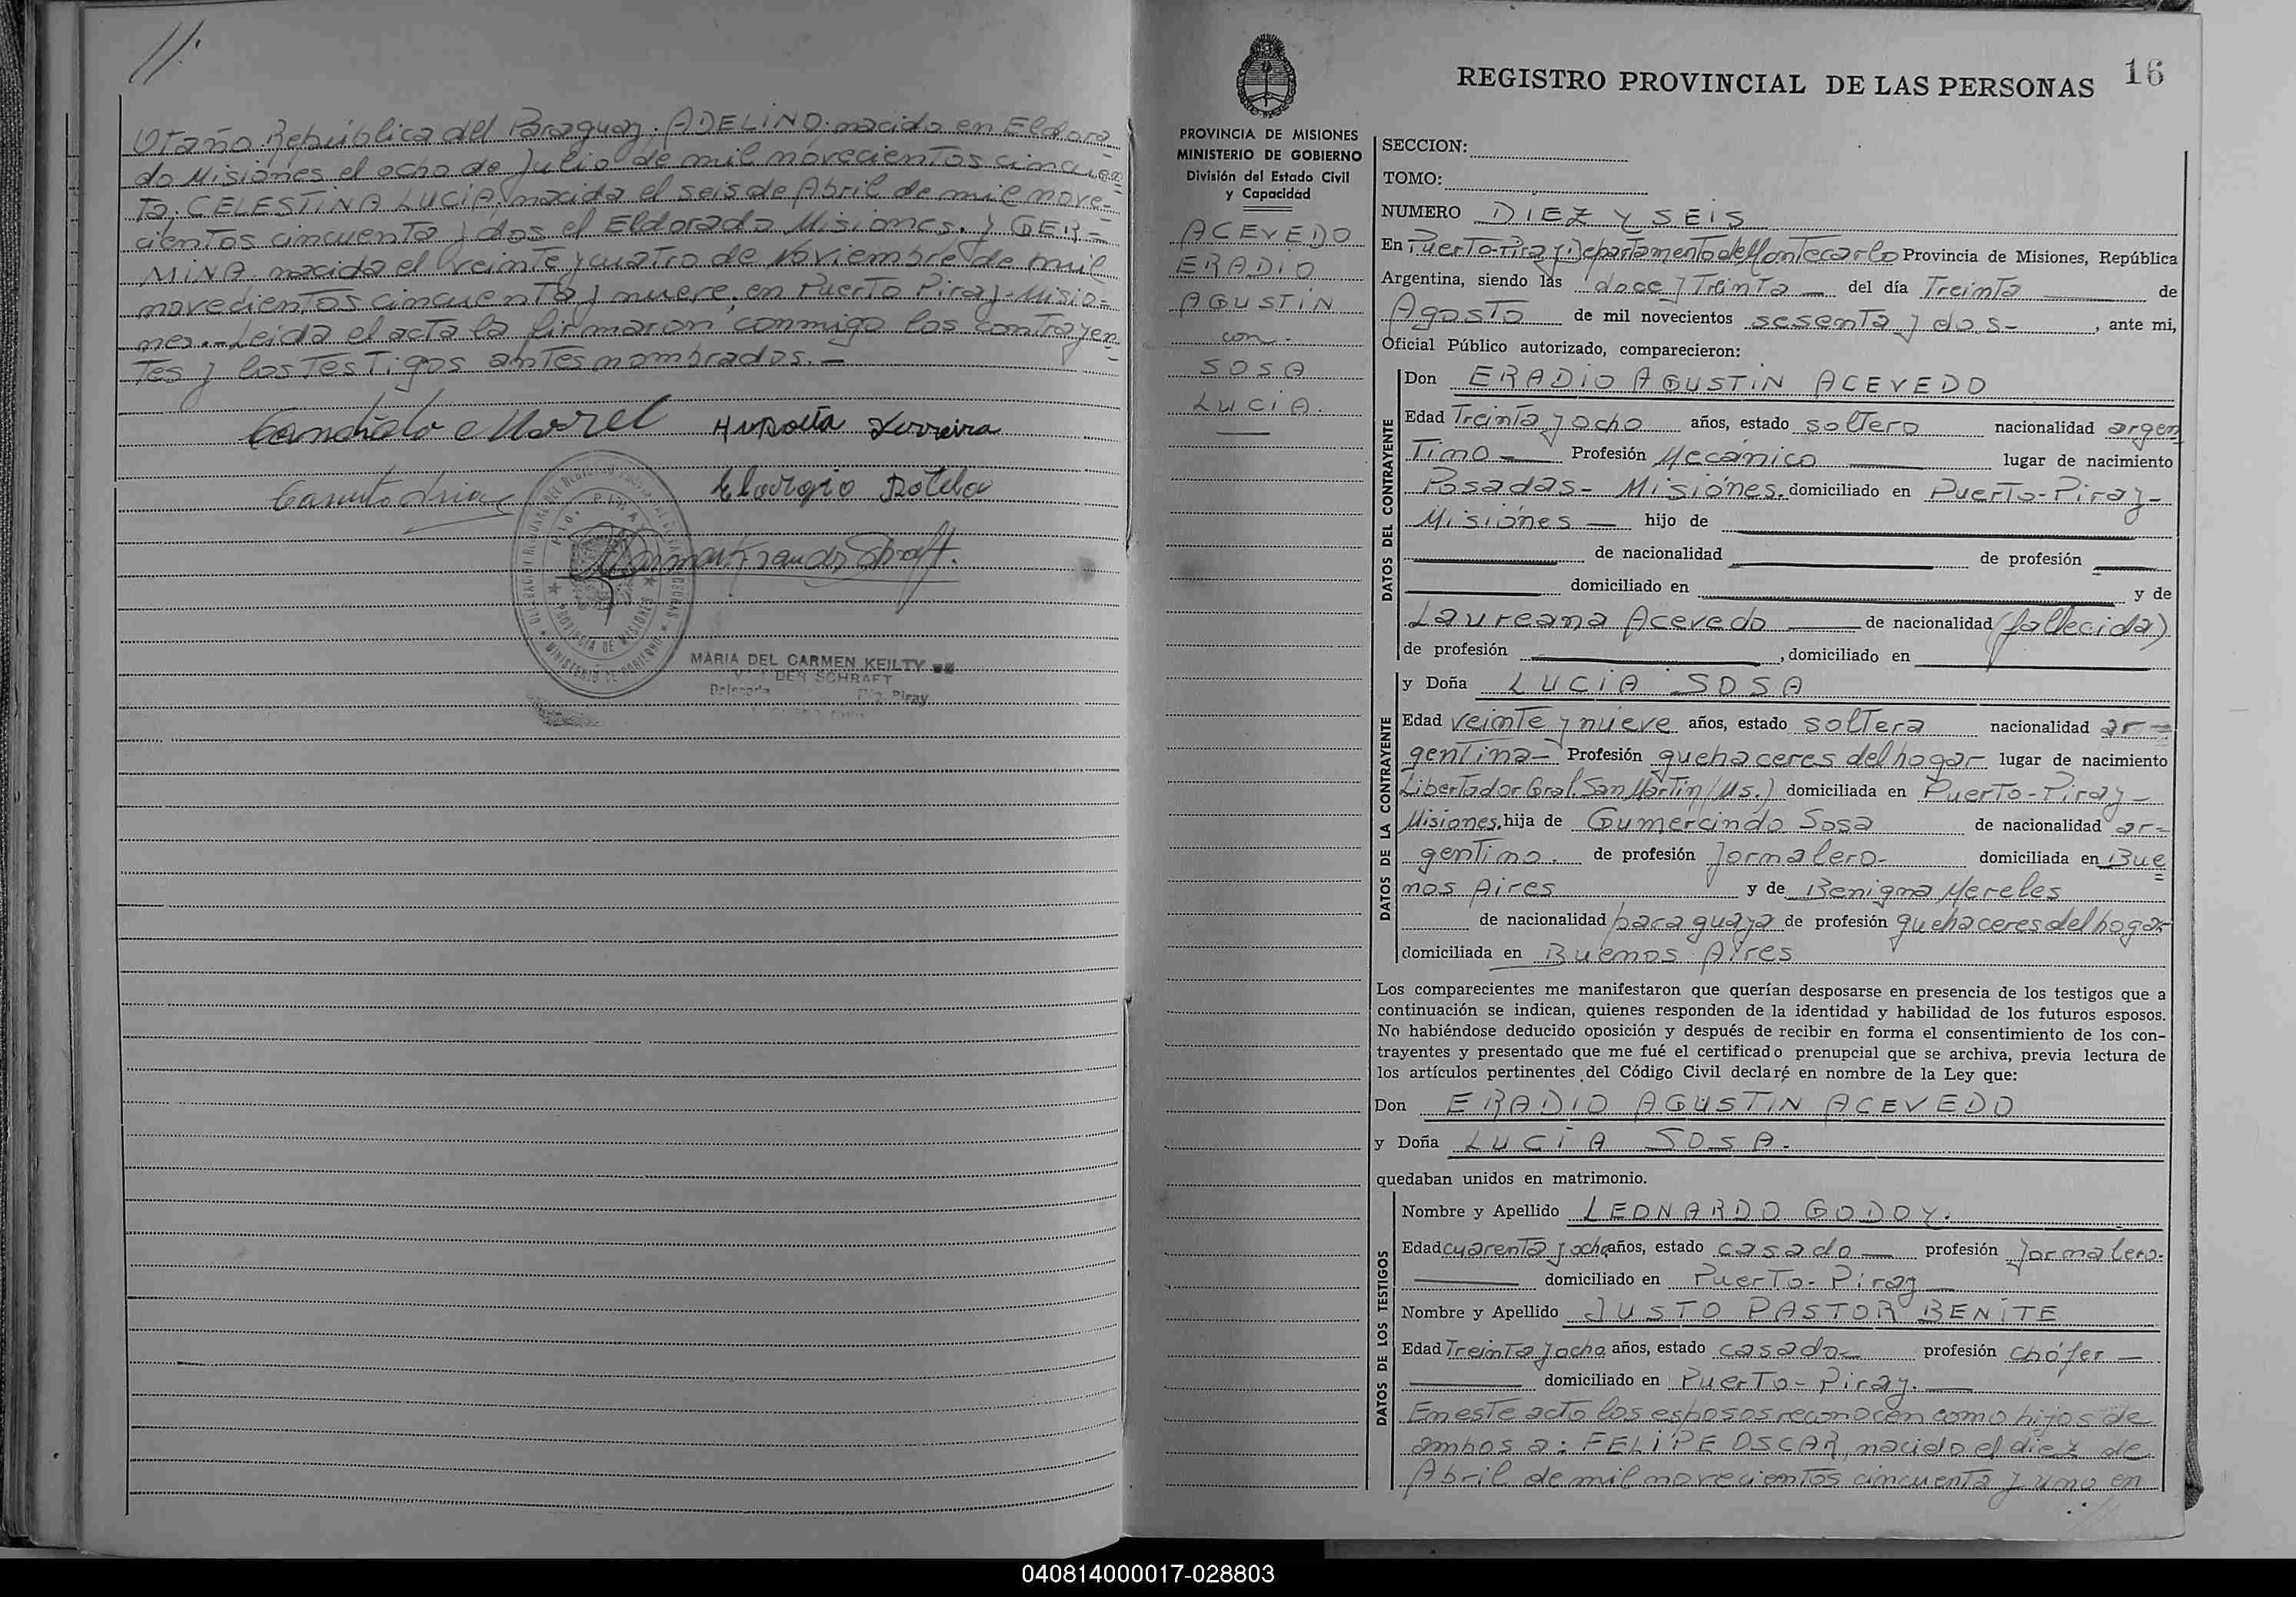 //.
Otaño República del Paraguay. ADELINO: nacido en Eldora
do Misiónes el ocho de Julio de mil novecientos cincuen=
Ta; CELESTINA LUCIA, nacida el seis de Abril de mil nove=
cientos cincuenta y dos el Eldorado Misiones. y GER=
MINA nacida el veinte y cuatro de Noviembre de mil
novecientos cincuenta y nueve, en Puerto Piray-Misio=
nes.-Leida el acta la firmaron conmigo los contrayen
tes y los Testigos antes nombrados.-
Candiato Morel
Ferreira
Rotela
MARIA DEL CARMEN KEILTY
DER SCHRAFT
Piray
REGISTRO PROVINCIAL DE LAS PERSONAS 16
PROVINCIA DE MISIONES
MINISTERIO DE GOBIERNO
División del Estado Civil
y Capacidad
ACEVEDO
ERADIO
AGUSTIN
con-
SOSA
LUCIA.
SECCION:
TOMO:
NUMERO DIEZ Y SEIS
En Puerto-Piray: Departamento de Montecarlo Provincia de Misiones, República
Argentina, siendo las doce y Treinta — del día Treinta — de
Agosto de mil novecientos sesenta y dos-, ante mi,
Oficial Público autorizado, comparecieron:
DATOS DEL CONTRAYENTE
Don ERADIO AGUSTIN ACEVEDO
Edad Treinta y ocho años, estado soltero nacionalidad argen
Tino — Profesión Mecánico — lugar de nacimiento
Posadas- Misiónes. domiciliado en Puerto-Piray-
Misiónes — hijo de —
— de nacionalidad — de profesión —
— domiciliado en — y de
Laureana Acevedo — de nacionalidad (fallecida)
de profesión —, domiciliado en —
DATOS DE LA CONTRAYENTE
y Doña LUCIA SOSA
Edad veinte y nueve años, estado soltera nacionalidad ar=
gentina- Profesión quehaceres del hogar lugar de nacimiento
Libertador Gral. San Martin (Ms.) domiciliada en Puerto-Piray-
Misiones. hija de Gumercindo Sosa de nacionalidad ar=
gentino. de profesión Jornalero- domiciliada en Bue
nos Aires y de Benigna Mereles
de nacionalidad paraguaya de profesión quehaceres del hogar
domiciliada en Buenos Aires
Los comparecientes me manifestaron que querían desposarse en presencia de los testigos que a
continuación se indican, quienes responden de la identidad y habilidad de los futuros esposos.
No habiéndose deducido oposición y después de recibir en forma el consentimiento de los con-
trayentes y presentado que me fué el certificado prenupcial que se archiva, previa lectura de
los artículos pertinentes del Código Civil declaré en nombre de la Ley que:
Don ERADIO AGUSTIN ACEVEDO
y Doña LUCIA SOSA.
quedaban unidos en matrimonio.
DATOS DE LOS TESTIGOS
Nombre y Apellido LEONARDO GODOY.
Edad cuarenta y ocho años, estado casado — profesión Jornalero.
— domiciliado en Puerto-Piray —
Nombre y Apellido JUSTO PASTOR BENITE
Edad Treinta y ocho años, estado casado- profesión chófer —
— domiciliado en Puerto-Piray. —
En este acto los esposos reconocen como hijos de
ambos a: FELIPE OSCAR, nacido el diez de
Abril de mil novecientos cincuenta y uno en
040814000017-028803